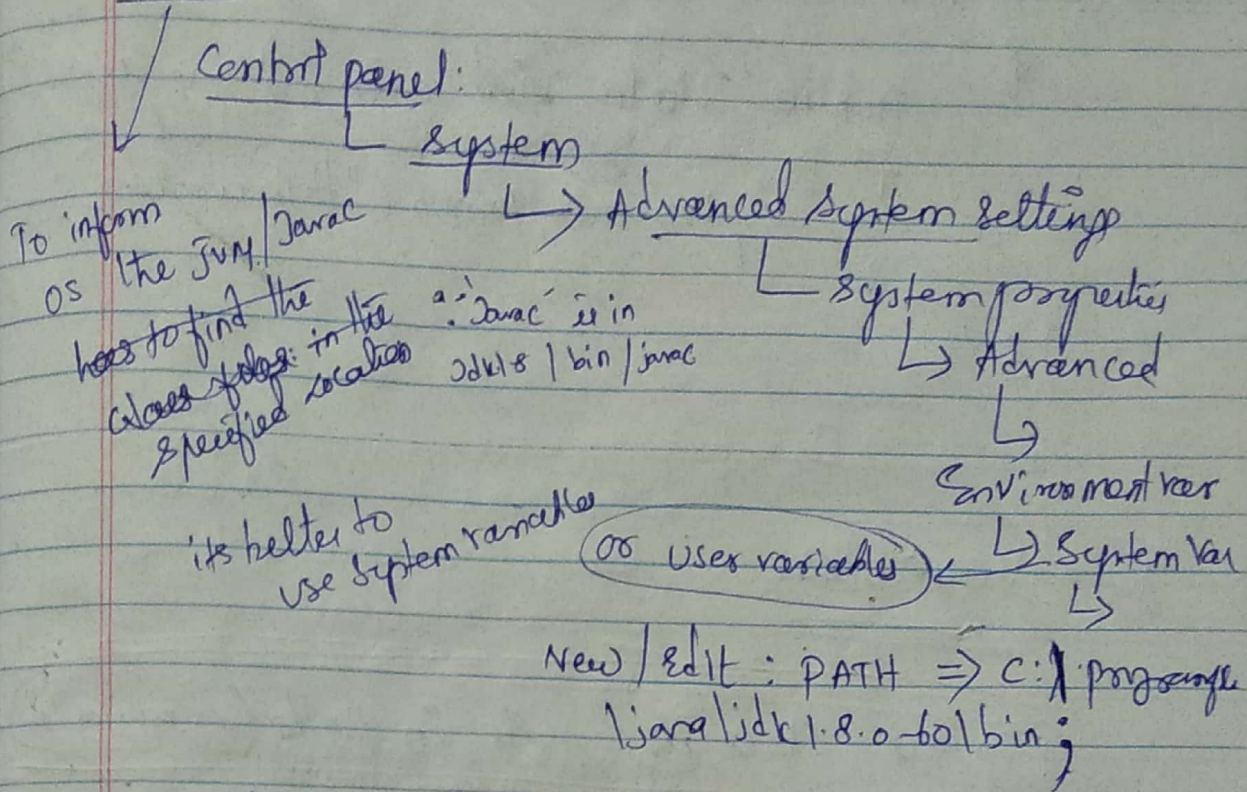 Control panel:
System
Advanced System Settings
System properties
Advanced
Environment var
System Var
or User variables
To inform
OS the JVM/Javac
has to find the
class files: in the
specified location
∵ 'Javac' is in
Jdk1.8 / bin / javac
its better to
use System variables
New / Edit : PATH => C:\programfile
\java\jdk1.8.0-60\bin;